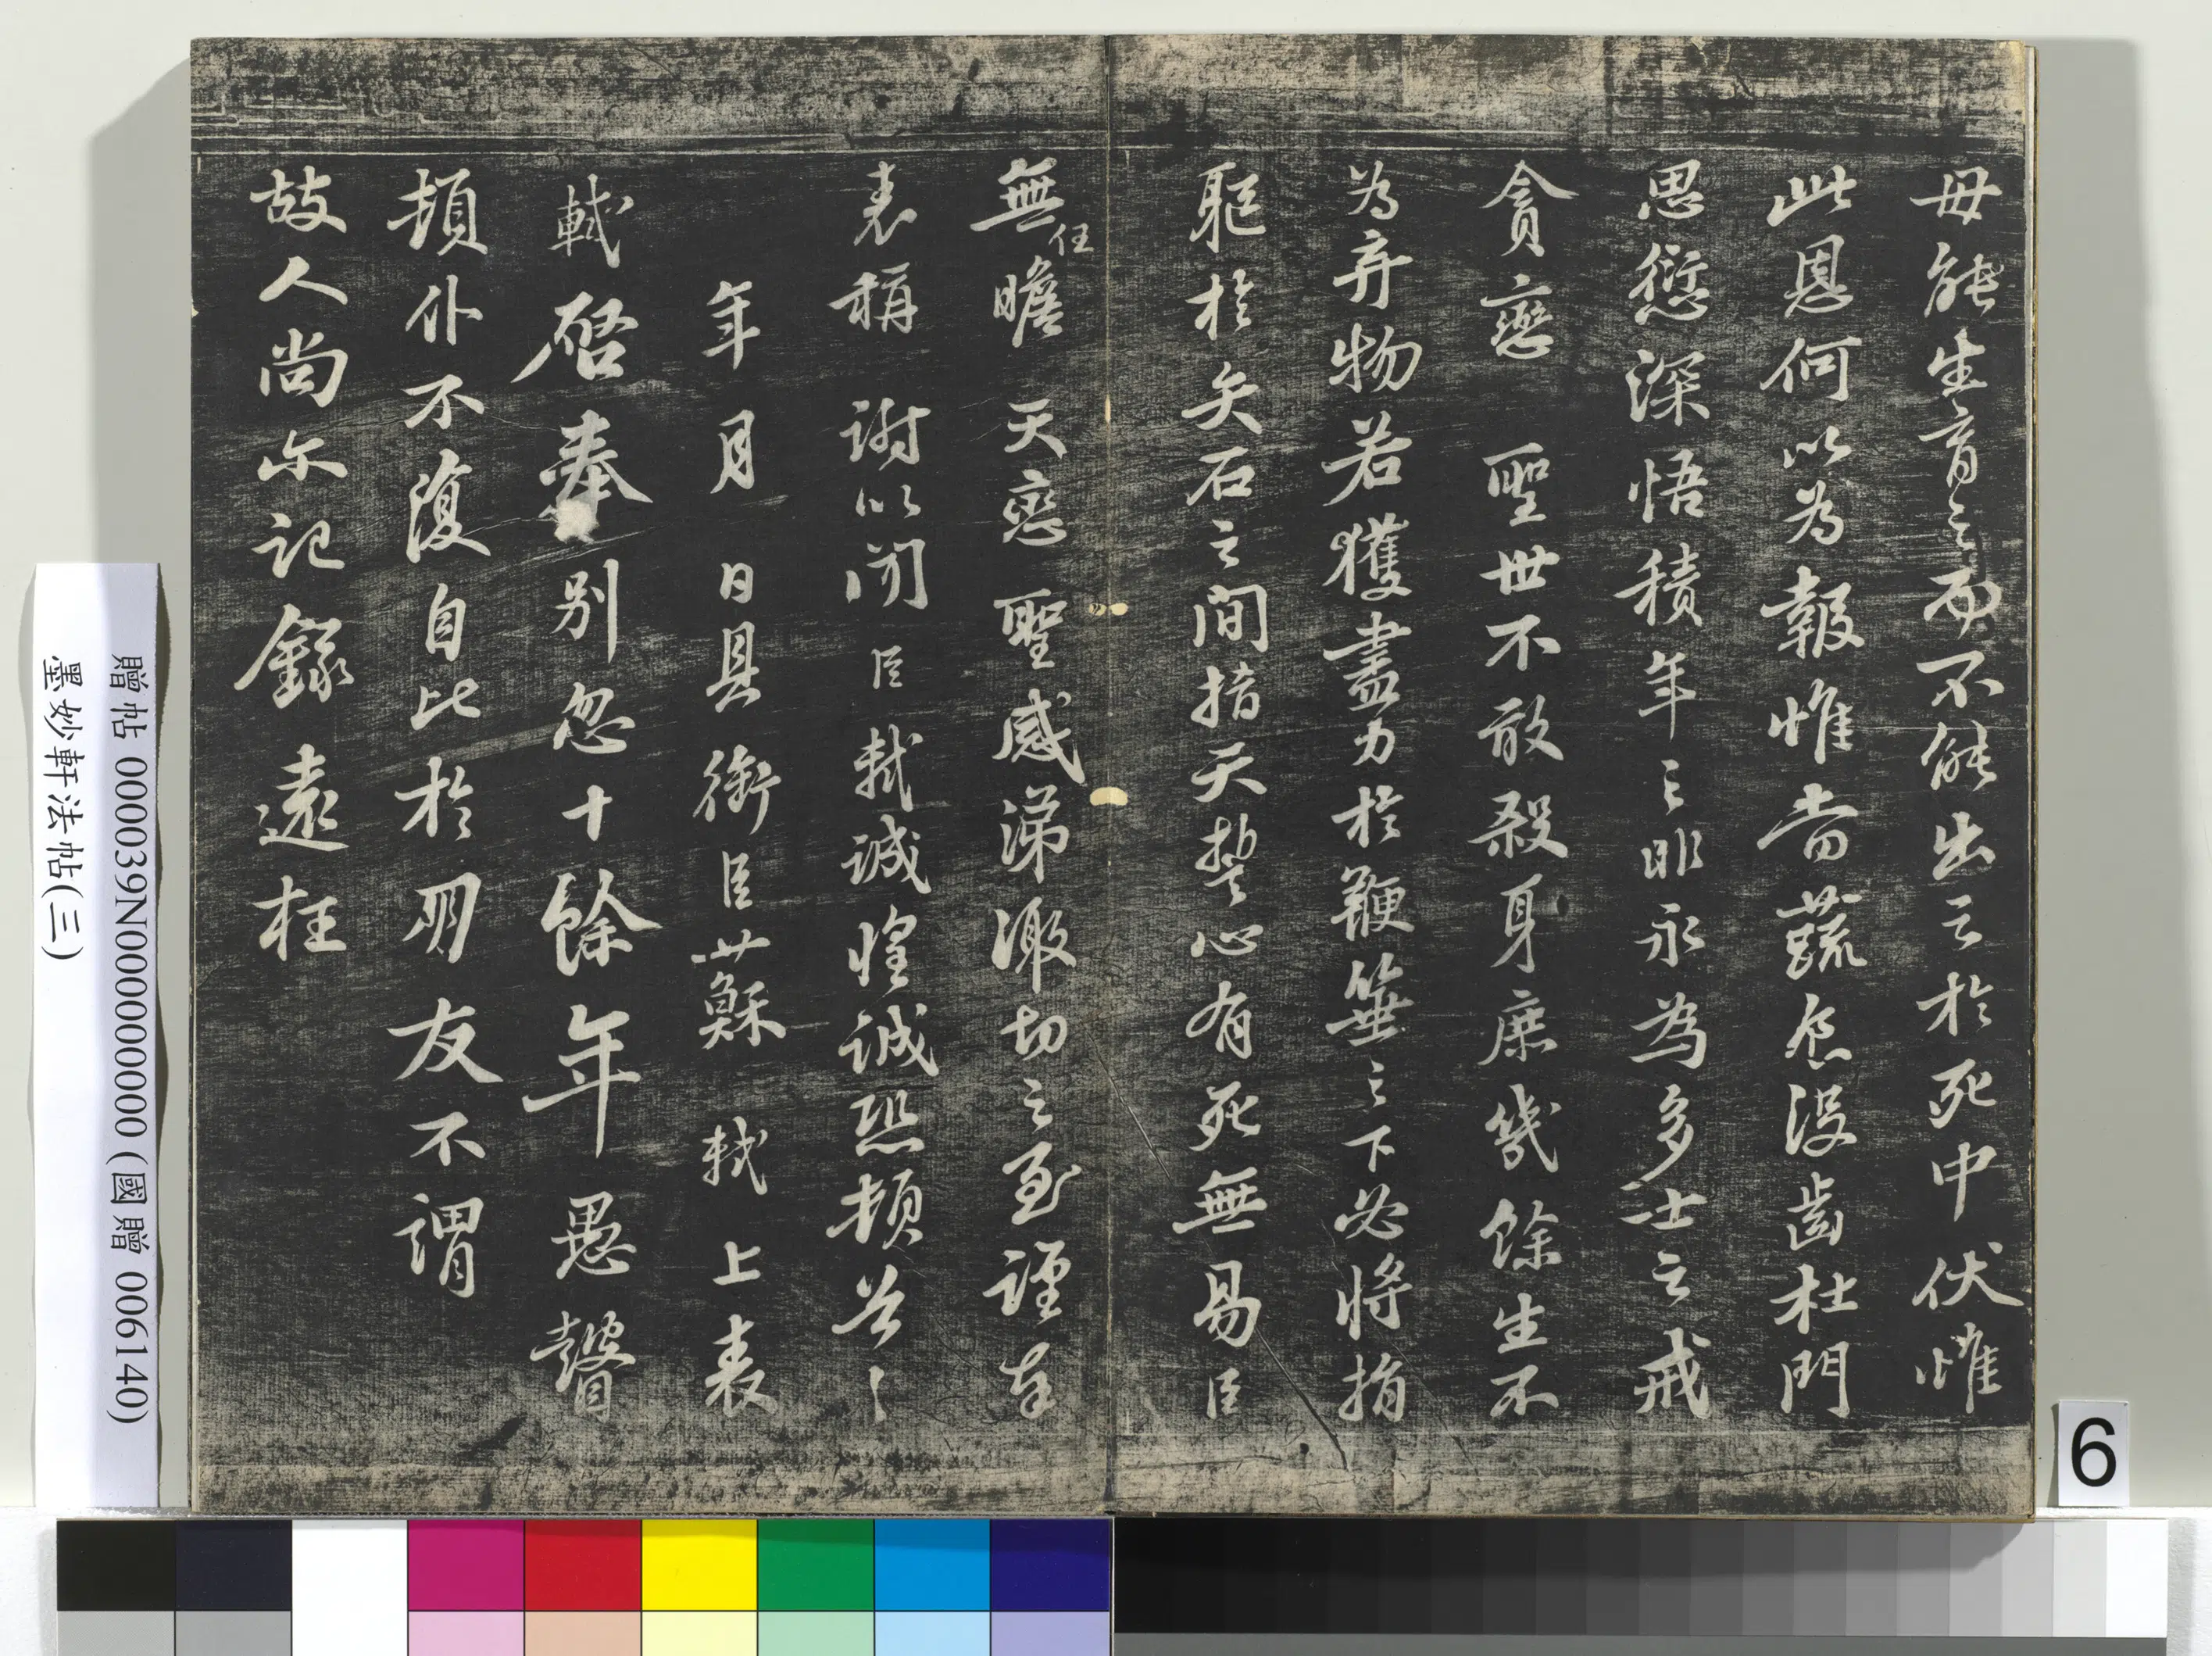 母能生育之而不能出之於死中伏惟
此恩何以為報惟當蔬食沒齒杜門
思愆深悟積年之非永為多士之戒
貪戀 聖世不敢殺身庶幾餘生不
為弃物若獲盡力於鞭箠之下必將捐
軀於矢石之間指天誓心有死無易臣
無任瞻 天戀 聖感涕激切之至謹奉
表稱 謝以聞 臣軾誠惶誠恐頓首々
年 月 日具銜臣蘇 軾 上表
軾啓奉別忽十餘年愚瞽
頓仆不復自比於朋友不謂
故人尚尔記錄遠枉
贈帖 0000039N000000000 (國贈 006140)
墨妙軒法帖(三)
6